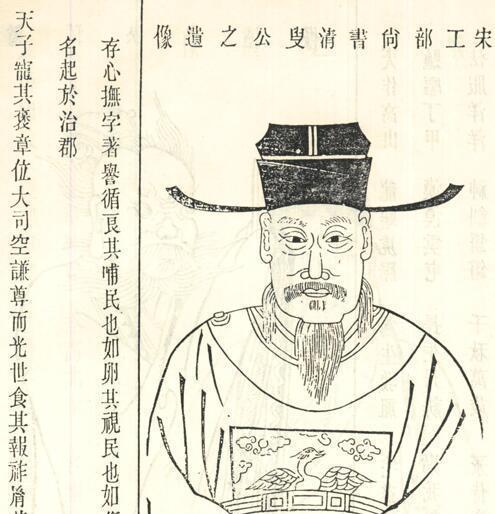 宋工部尚書清叟公之遺像
存心撫字著譽循良其哺民也如卵其視民也如
名起於治郡
天子寵其褒章位大司空謙尊而光世食其報祚胤